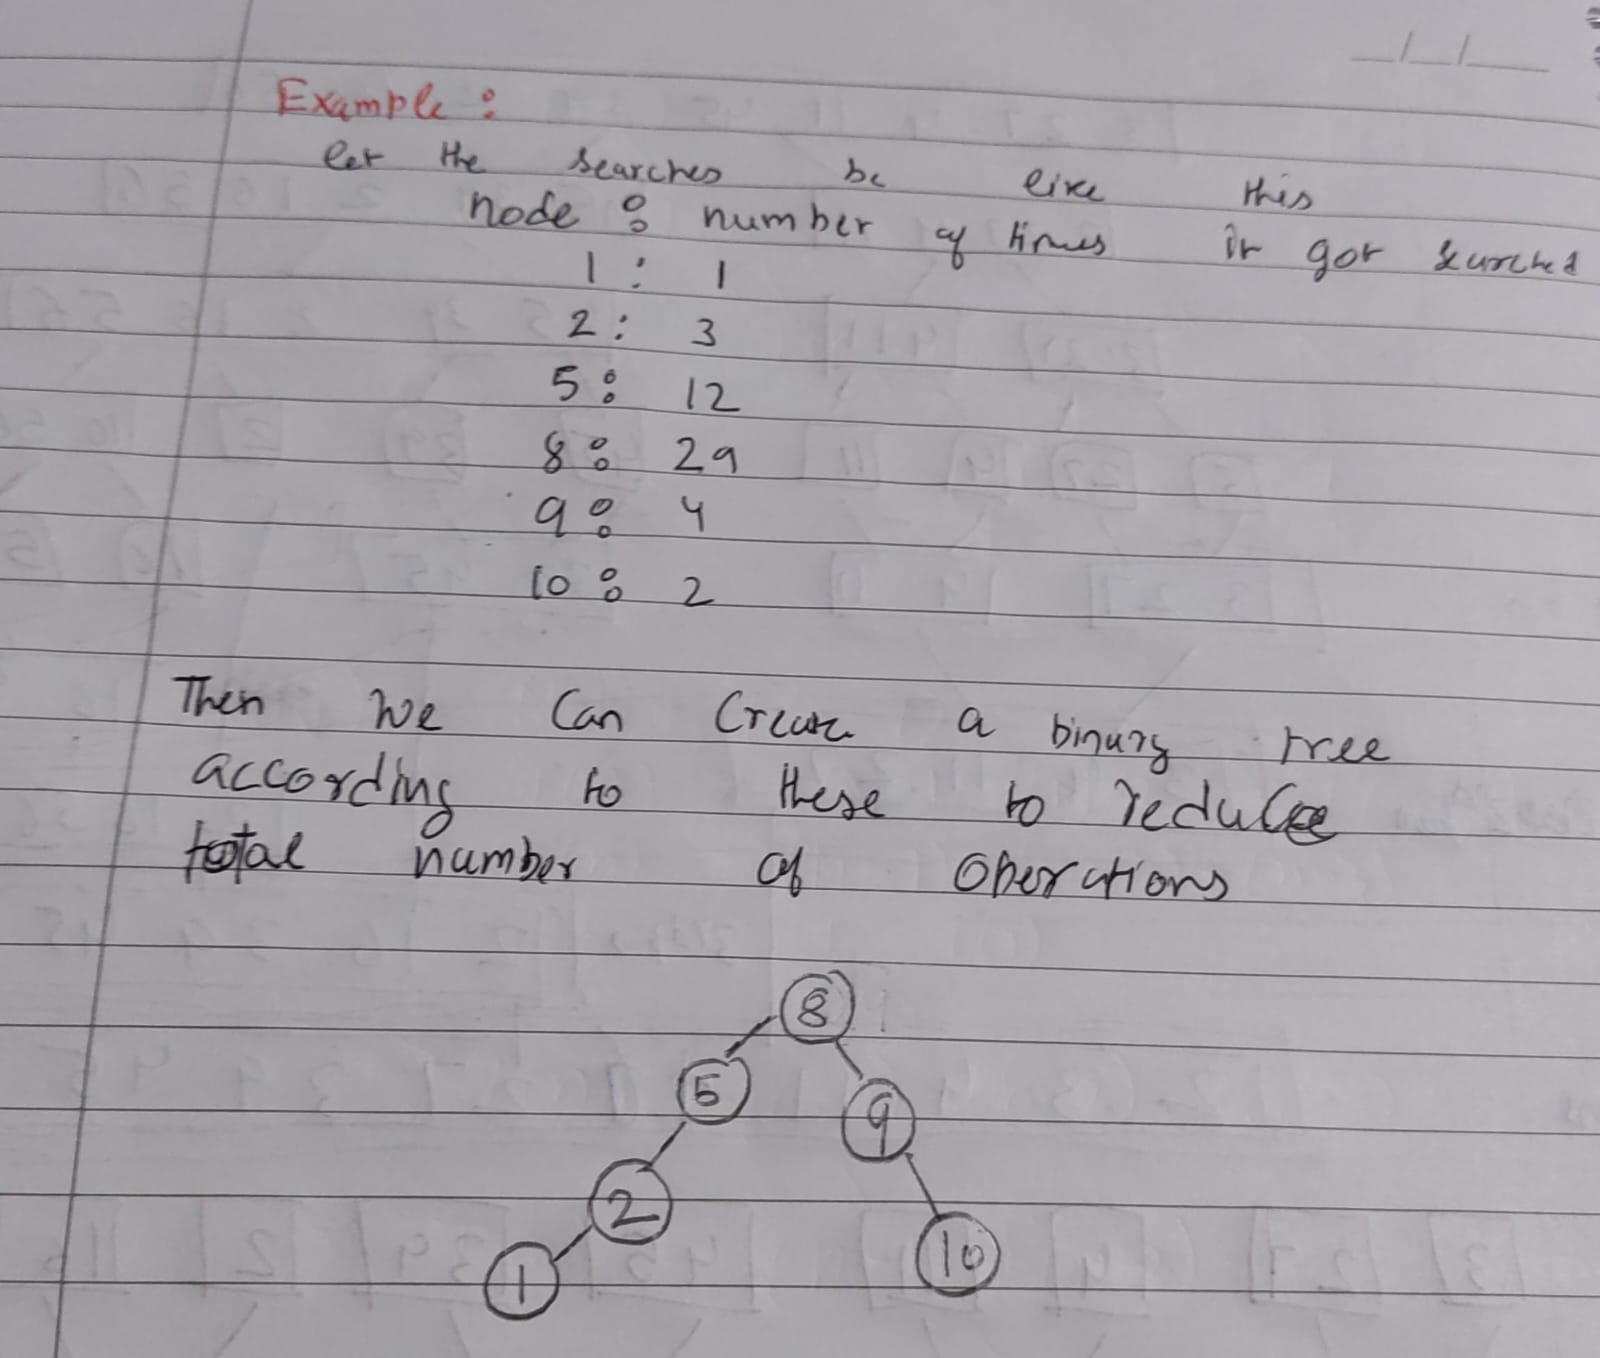 Example :
let the searches be like this
node : number of times it got searched
1 : 1
2 : 3
5 : 12
8 : 29
9 : 4
10 : 2
Then we can create a binary tree
according to these to reduce
total number of operations
8
5
9
2
10
1